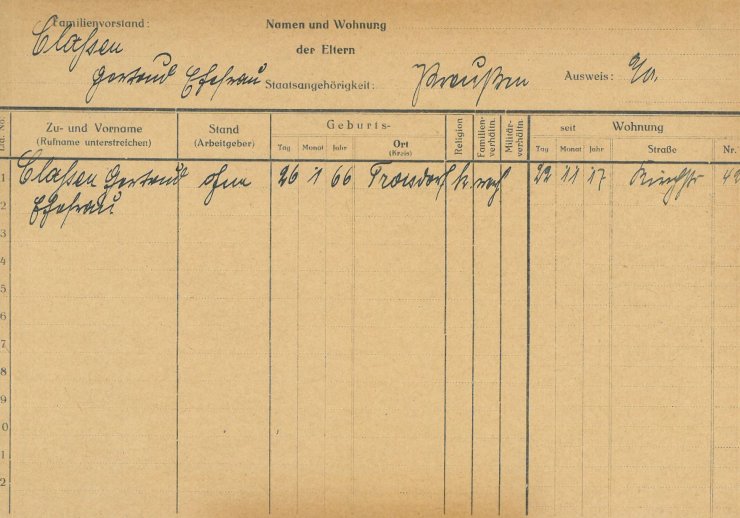 Familienvorstand: Namen und Wohnung
Claßen der Eltern
Gertrud Ehefrau Staatsangehörigkeit: Preußen Ausweis:
Lfd. No. Zu- und Vorname Stand Geburts- Religion Familien-verhältn. Militär-verhältn. seit Wohnung
(Rufname unterstreichen) (Arbeitgeber) Tag Monat Jahr Ort (Kreis) Tag Monat Jahr Straße Nr.
1 Claßen Gertrud ohne 26 1 66 Troisdorf k. verh 22 11 17 Kirchstr 42
2 Ehefrau
3
4
5
6
7
8
9
0
1
2